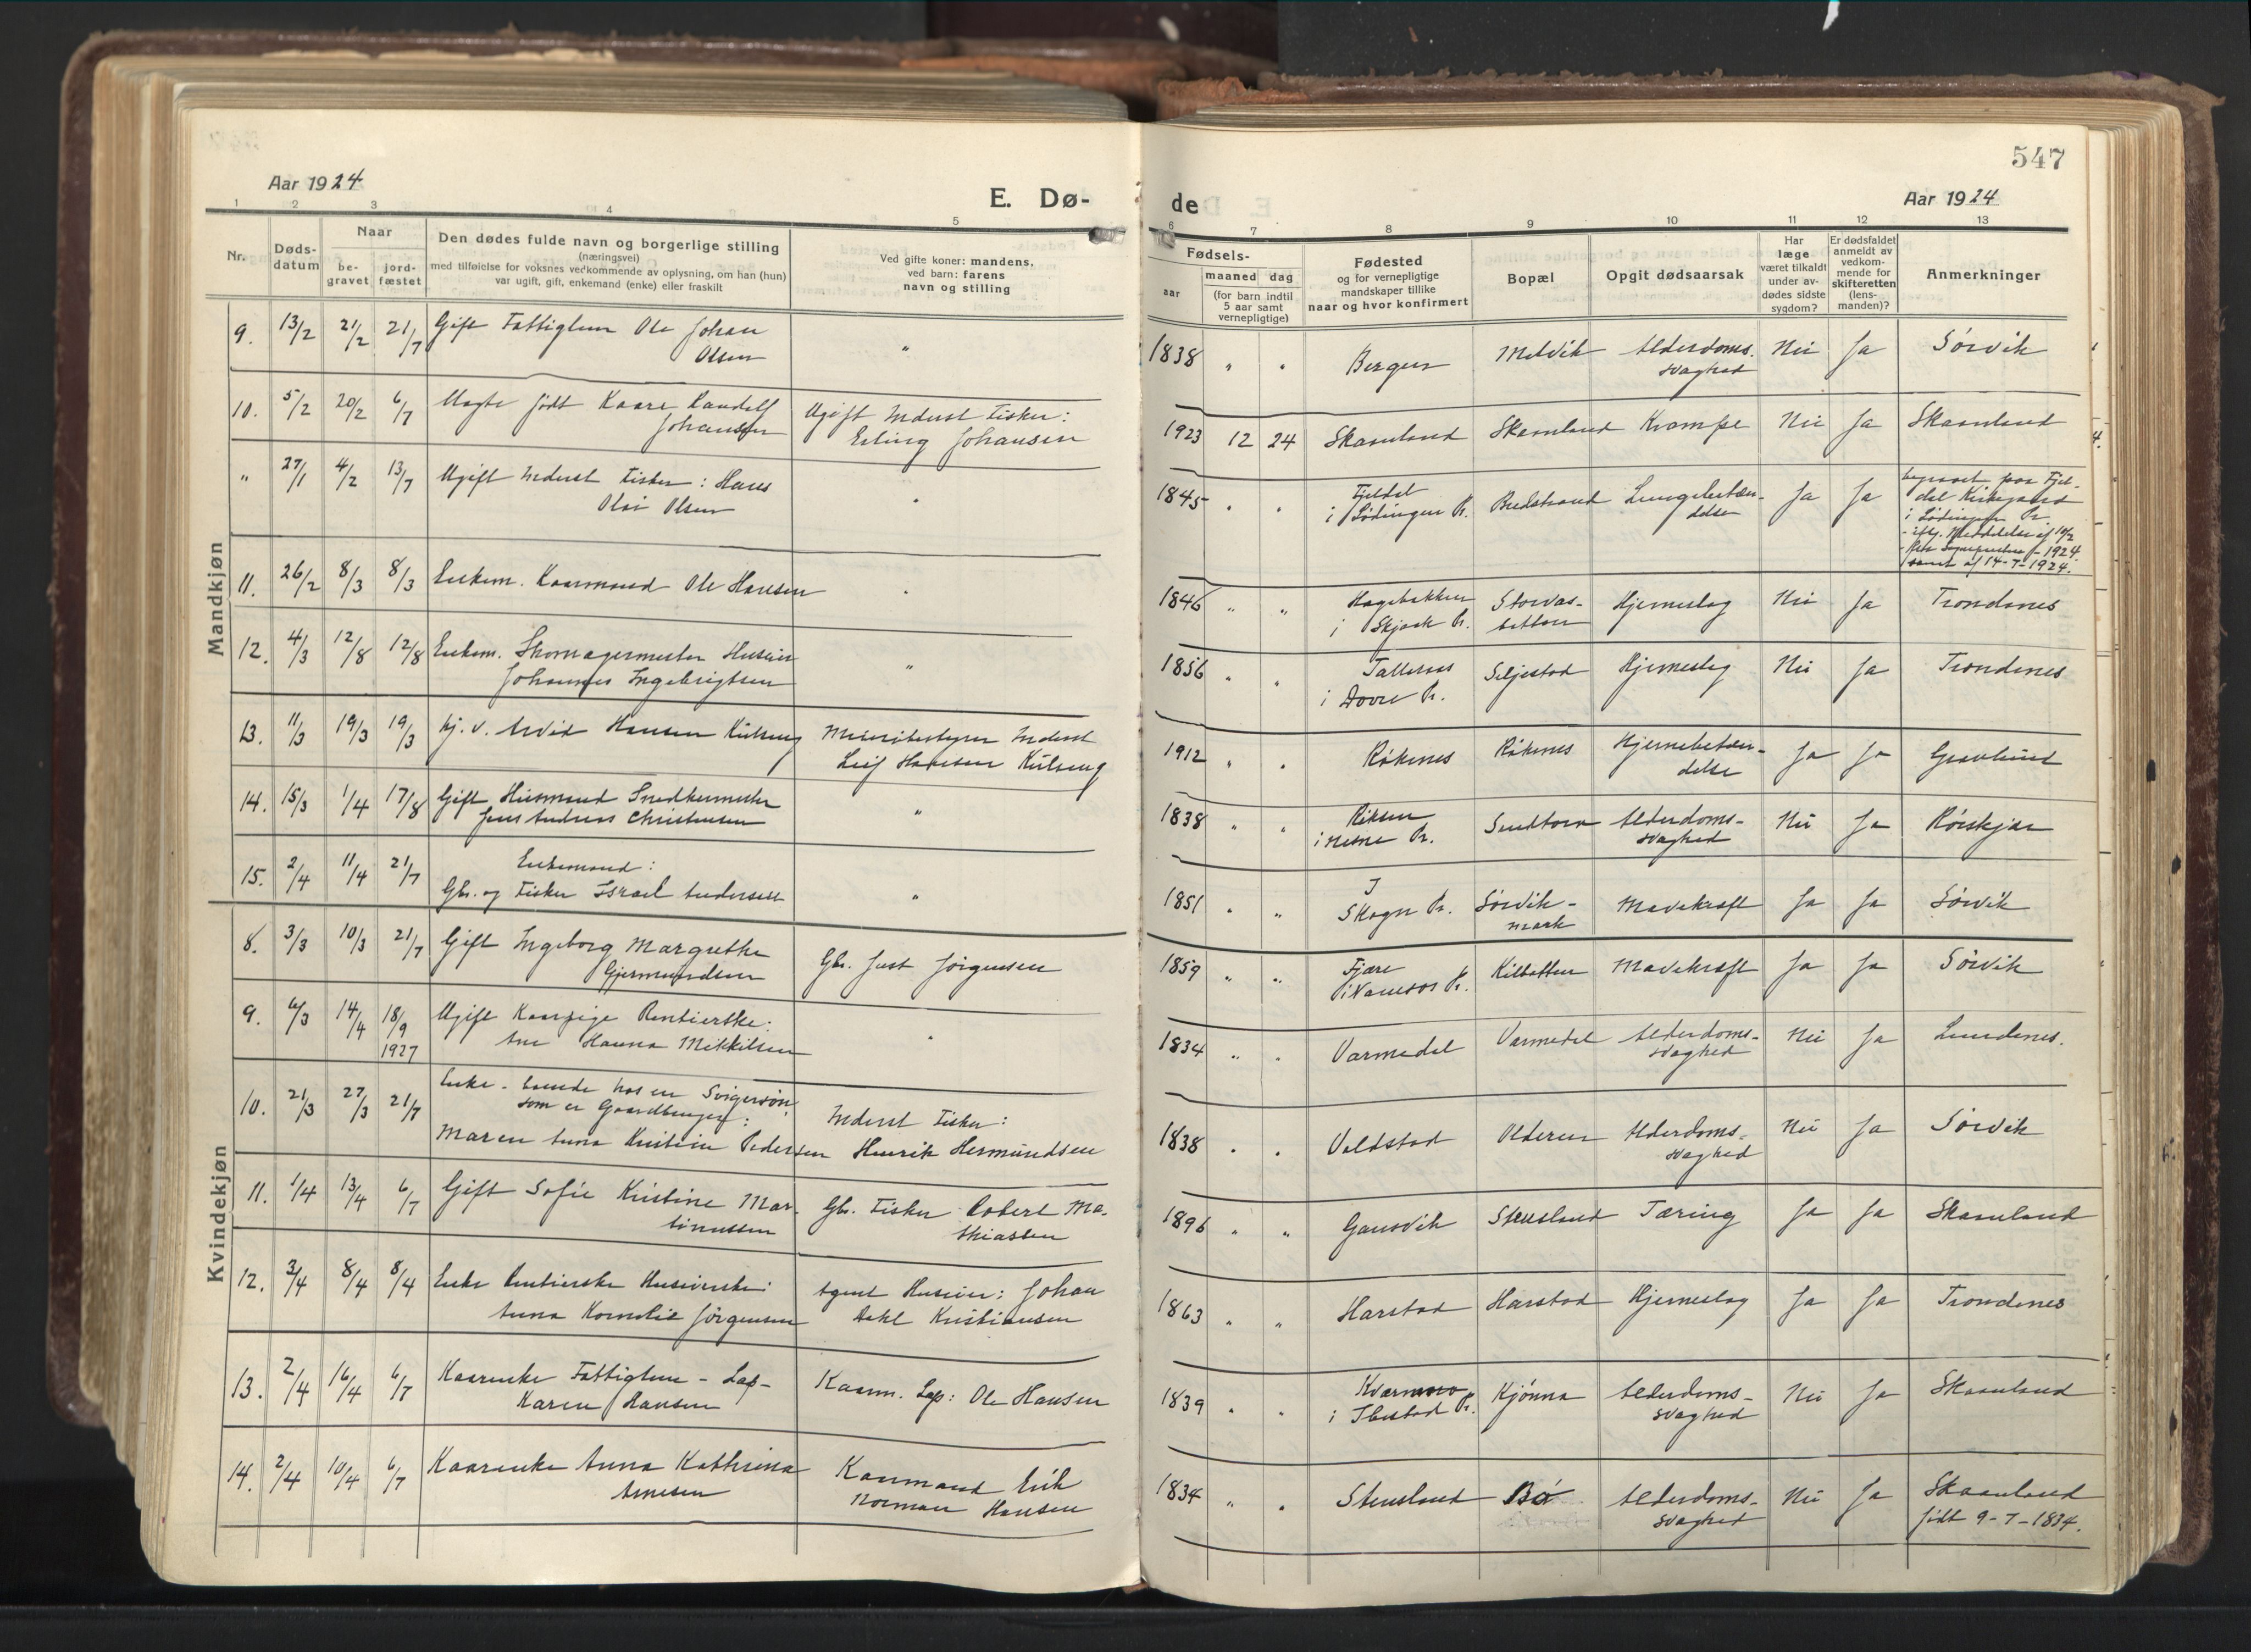 547
Aar 1924
E. Dø-
de
Aar 1924
1 2 3 4 5 6 7 8 9 10 11 12 13
Nr.
Døds-
datum
Naar
be-
gravet
jord-
fæstet
Den dødes fulde navn og borgerlige stilling
(næringsvei)
med tilføielse for voksnes vedkommende av oplysning, om han (hun)
var ugift, gift, enkemand (enke) eller fraskilt
Ved gifte koner: mandens,
ved barn: farens
navn og stilling
Fødsels-
aar
maaned dag
(for barn indtil
5 aar samt
vernepligtige)
Fødested
og for vernepligtige
mandskaper tillike
naar og hvor konfirmert
Bopæl
Opgit dødsaarsak
Har
læge
været tilkaldt
under av-
dødes sidste
sygdom?
Er dødsfaldet
anmeldt av
vedkom-
mende for
skifteretten
(lens-
manden)?
Anmerkninger
Mandkjøn
9. 13/2 21/2 21/7 Gift Fattiglem Ole Johan
Olsen
" 1838 " " Bergen Melvik Alderdoms-
svaghed
Nei Ja Sörvik
10. 5/2 20/2 6/7 Uægte født Kaare Randolf
Johansen
Ugift Inderst Fisker:
Erling Johansen
1923 12 24 Skaanland Skaanland Krampe Nei Ja Skaanland
" 27/1 4/2 13/7 Ugift Inderst Fisker: Hans
Olai Olsen
" 1845 " " Fjeldal
i Lødingen Pr.
Bredstrand Lungebetæn-
delse
Ja Ja begravet paa Fjel-
dal Kirkegaard
i Lødingen Pr.
Meddelelse af 10/2
1924
samt af 14-7-1924.
11. 26/2 8/3 8/3 Enkem. Kaarmand Ole Hansen
" 1846 " " Hagebakken
i Skjaak Pr.
Storvas-
botten
Hjerneslag Nei Ja Trondenes
12. 4/3 12/8 12/8 Enkem. Skomagermester Huseier
Johannes Ingebrigtsen
" 1856 " "
i Dovre Pr.
Seljestad Hjerneslag Nei Ja Trondenes
13. 11/3 19/3 19/3 Arvid Hansen Kulseng
Meieribestyrer Inderst
Leif Hansen Kulseng
1912 " " Røkenes Røkenes Hjernebetæn-
delse
Ja Ja Gravlund
14. 15/3 1/4 17/8 Gift Husmand Snedkermester
Jens Andreas Christensen
" 1838 " "
i Nesne Pr.
Sandtorv Alderdoms-
svaghed
Nei Ja Rörskjær
15. 2/4 11/4 21/7 Enkemand:
Gbr. og Fisker Israel Andersen
" 1851 " " I
Skogn Pr.
Sörvik-
mark
Mavekræft Ja Ja Sörvik
Kvindekjøn
8. 3/3 10/3 21/7 Gift Ingeborg Margrethe
Gjermundsen
Gbr. Just Jörgensen
1859 " " Fjære
i Namsos Pr.
Kilbotten Mavekræft Ja Ja Sörvik
9. 6/3 14/4 18/9
1927
Ugift Kaarpige Rentierske:
Ane Hanna Mikkelsen
" 1834 " " Varmedal Varmedal Alderdoms-
svaghed
Nei Ja Lundenes.
10. 21/3 27/3 21/7 Enke - boende hos en Svigersøn,
som er Gaardbruger:
Maren Anna Kristine Pedersen
Inderst Fisker:
Henrik Hermundsen
1838 " " Voldstad Olderen Alderdoms-
svaghed
Nei Ja Sörvik
11. 1/4 13/4 6/7 Gift Sofie Kristine Mar-
tinussen
Gbr. Fisker Robert Ma-
thiassen
1896 " " Gausvik Stensland Tæring Ja Ja Skaanland
12. 3/4 8/4 8/4 Enke Rentierske Huseierske:
Anna Kornelie Jörgensen
Agent Huseier: Johan
Dahl Kristiansen
1863 " " Harstad Harstad Hjerneslag Ja Ja Trondenes
13. 2/4 16/4 6/7 Kaarenke Fattiglem - Lap-
Karen Hansen
Kaarm. Lap: Ole Hansen
1839 " "
i Ibestad Pr.
Kjönna Alderdoms-
svaghed
Nei Ja Skaanland
14. 2/4 10/4 6/7 Kaarenke Anna Kathrina
Arnesen
Kaarmand Erik
Norman Hansen
1834 " " Stensland Bö Alderdoms-
svaghed
Nei Ja Skaanland
født 9-7-1834.